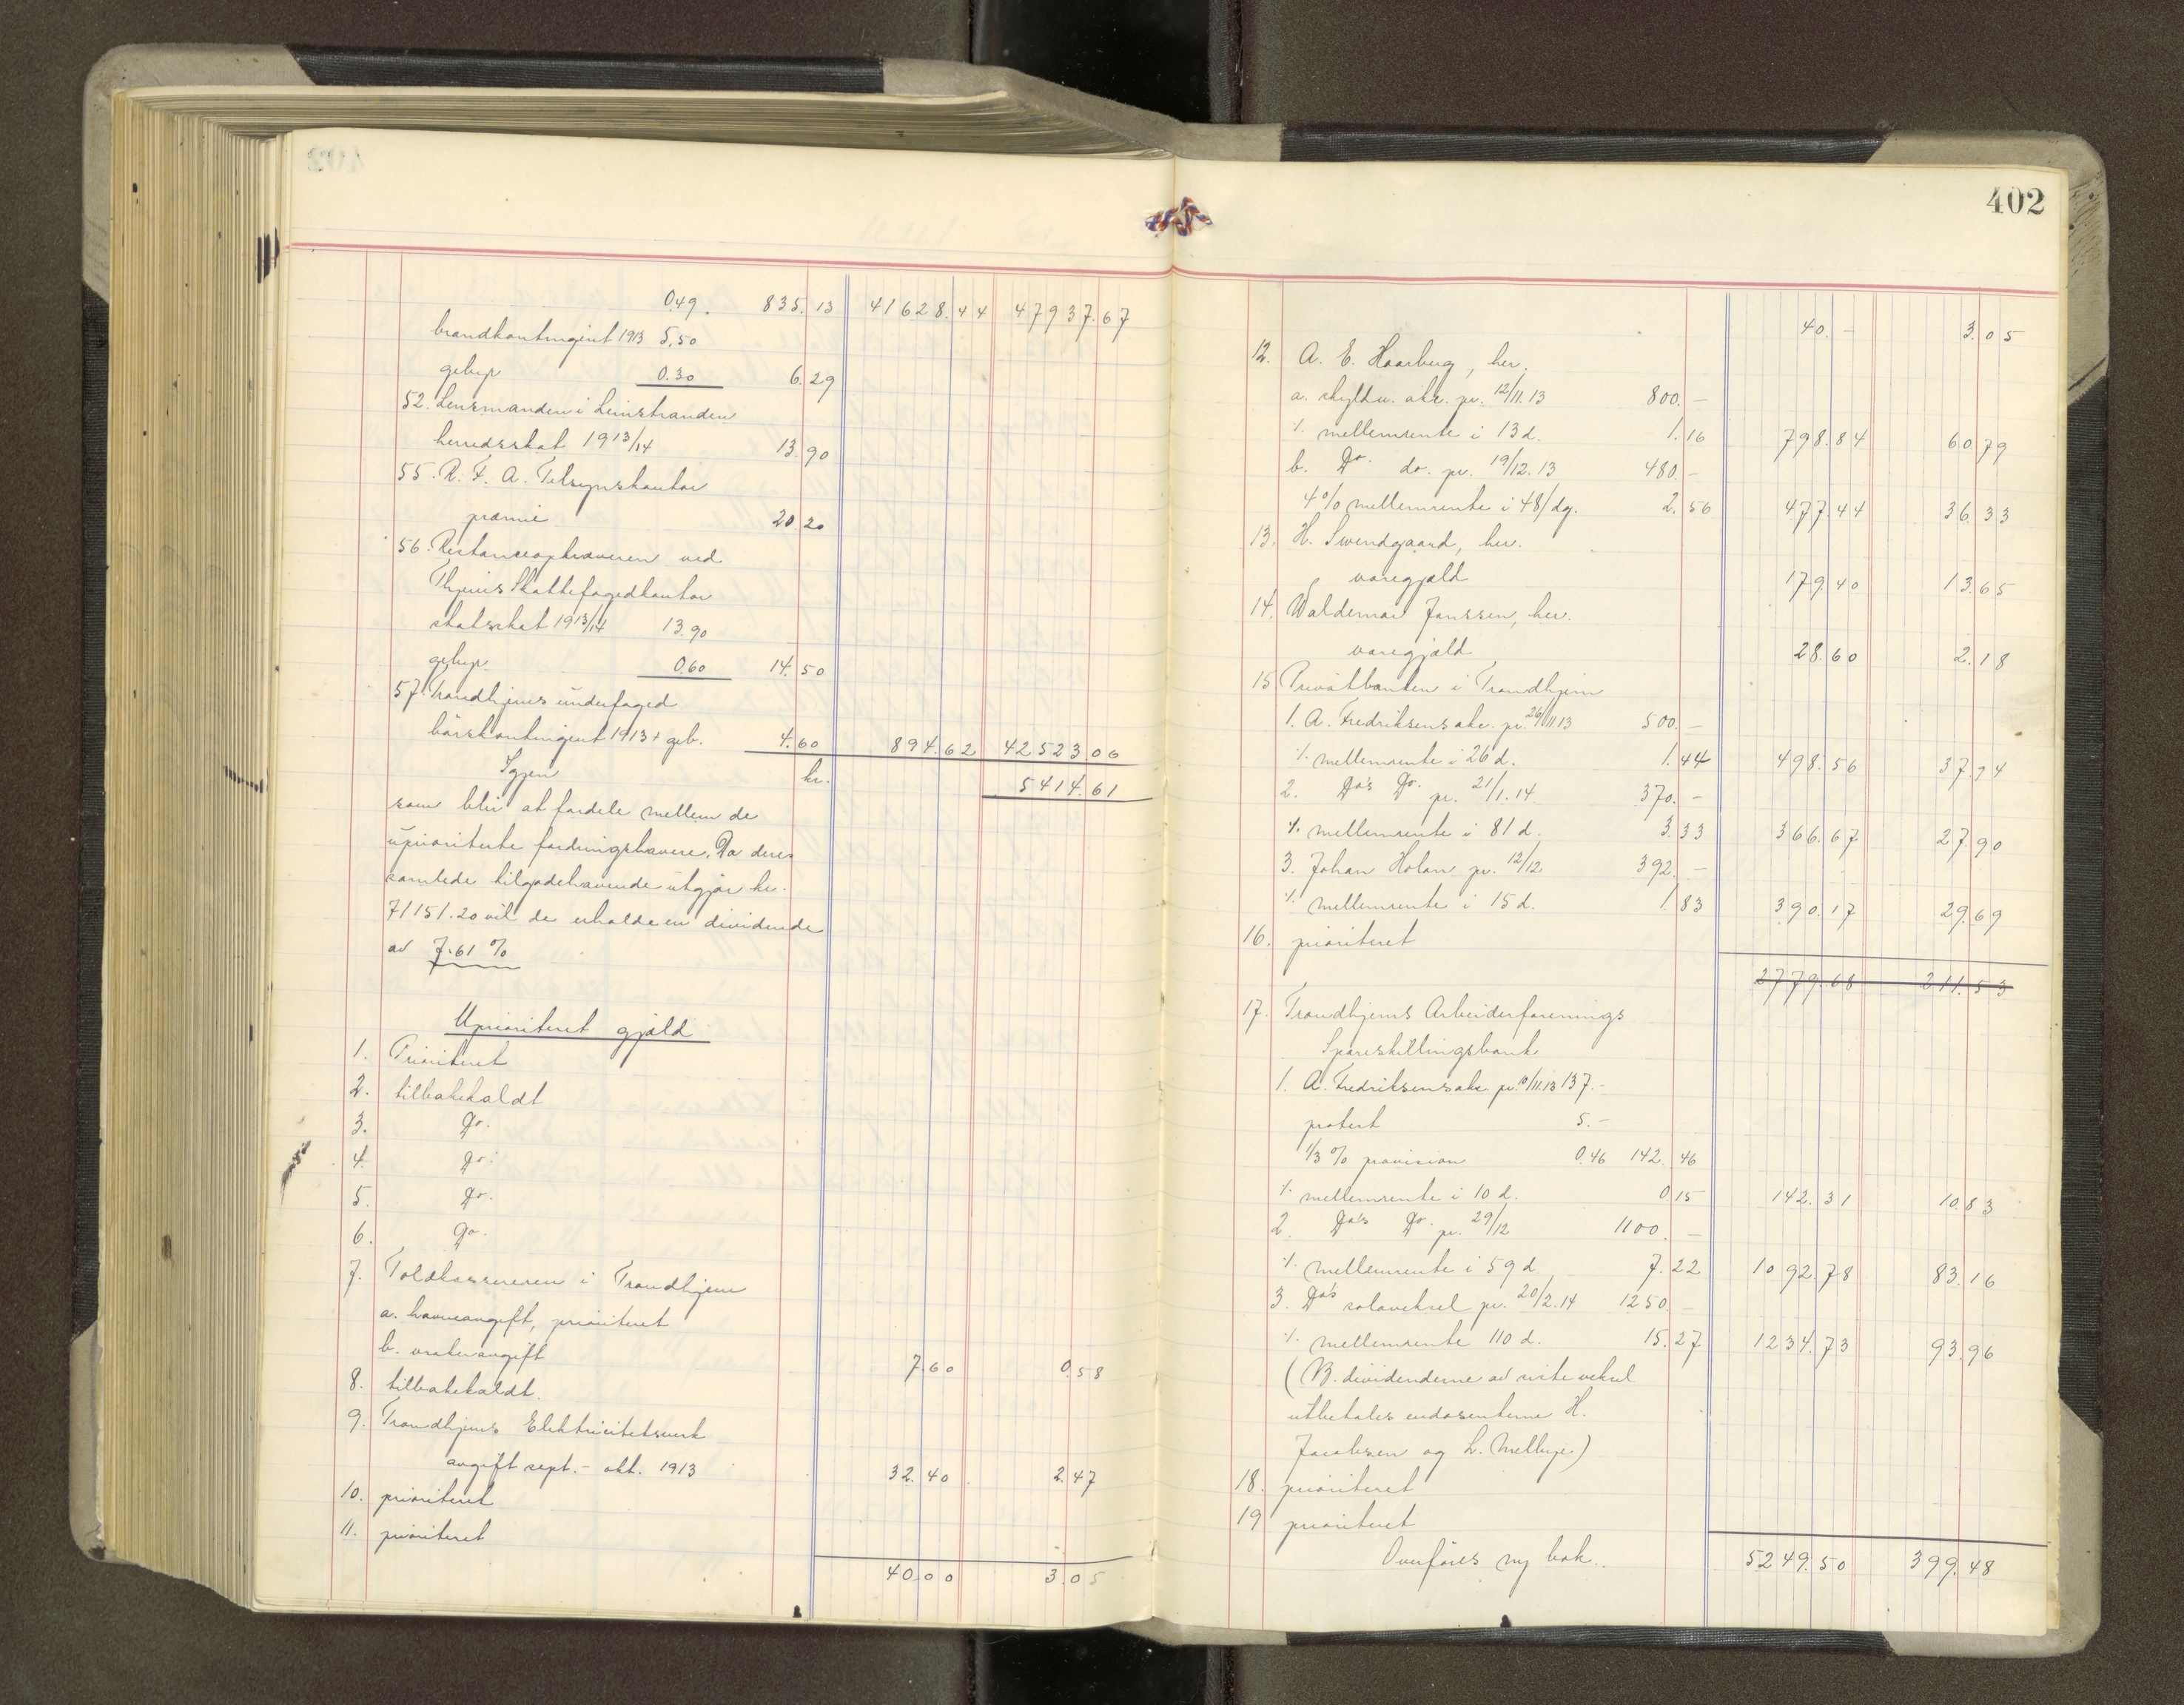 0.49. 835.13 41628.44 47937.67
brandkontingent 1913 5,50
gebyr 0.30 6.29
52. Lensmanden i Leinstranden
herredsskat 1913/14 13.90
55. R. F. A. Tilsynskontor
præmie 20.20
56. Restanceopkræveren ved
Thjems Skattefogedkontor
statsskat 1913/14 13.90
gebyr 0.60 14.50
57. Trondhjems underfoged
börskontingent 1913 + geb. 4.60 894.62 42523.06
Igjen kr. 5414.61
som blir at fordele mellem de
uprioriterte fordringshavere. Da deres
samlede tilgodehavende utgjör kr.
71151.20 vil de erholde en dividende
av 7.61 %
Uprioriteret gjæld
1. Prioriteret
2. tilbakekaldt
3. Do.
4. Do.
5. Do.
6. Do.
7. Toldkassereren i Trondhjem
a. havneavgift, prioriteret
b. vrakeravgift 7.60 0.58
8. tilbakekaldt.
9. Trondhjems Elektricitetsverk
avgift sept. - okt. 1913 32.40 2.47
10. prioriteret
11. prioriteret
40.00 3.05
402
40.- 3.05
12. A. E. Haarberg, her.
a. skyldn. akc. pr. 12/11.13 800.-
÷ mellemrente i 13 d. 1.16 798.84 60.79
b. Do. do. pr. 19/12.13 480.-
4% mellemrente i 48/dg. 2.56 477.44 36.33
13. H. Svendgaard, her.
varegjæld 179.40 13.65
14. Waldemar Janssen, her.
varegjæld 28.60 2.18
15 Privatbanken i Trondhjem
1. A. Fredriksens akc. pr. 26/11 13 500.-
÷ mellemrente i 26 d. 1.44 498.56 37.94
2. Do's Do. pr. 21/1.14 370.-
÷ mellemrente i 81 d. 3.33 366.67 27.90
3. Johan Holan pr. 12/12 392.-
÷ mellemrente i 15 d. 1.83 390.17 29.69
16. prioriteret
2779.68 211.53
17. Trondhjems Arbeiderforenings
Spareskillingsbank
1. A. Fredriksens akc pr. 10/11.13 137.-
protest 5.-
1/3 % provision 0.46 142.46
÷ mellemrente i 10 d. 0.15 142.31 10.83
2. Do's Do. pr. 29/12 1100.-
÷ mellemrente i 59 d. 7.22 1092.78 83.16
3. Do's solaveksel pr. 20/2.14 1250.-
÷ mellemrente 110 d. 15.27 1234.73 93.96
(NB. dividenderne av siste veksel
utbetales endosenterne H.
Jacobsen og L. Mellbye)
18. prioriteret
19 prioriteret
Overföres ny bok. 5249.50 399.48